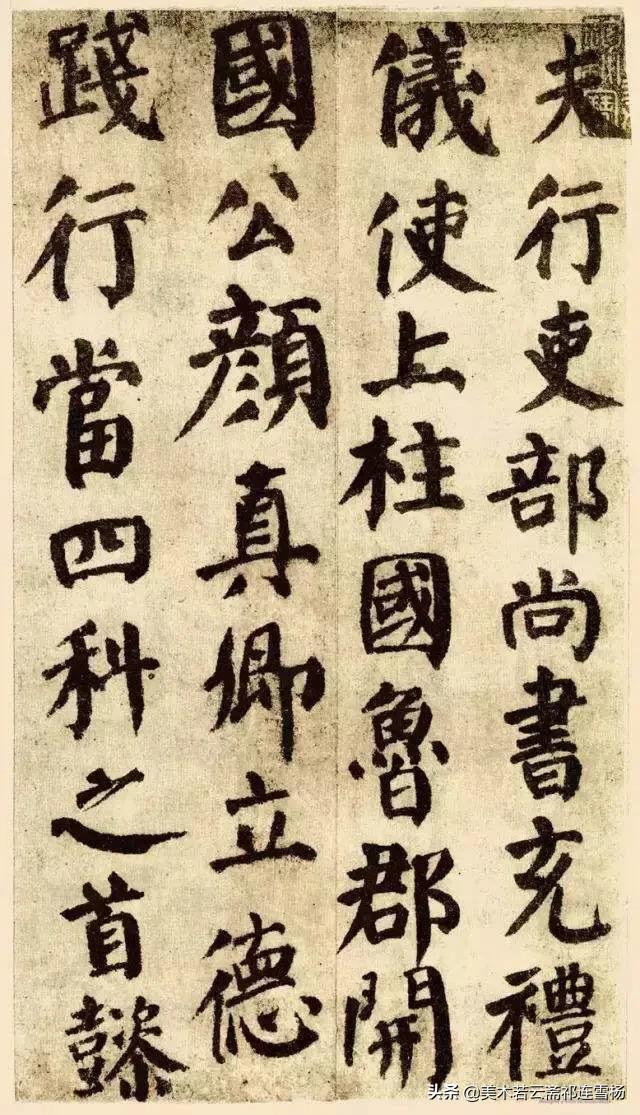 夫行吏部尚書充禮
儀使上柱國魯郡開
國公顏真卿立德
踐行當四科之首懿
头条 @美木若云斋祁连雪杨